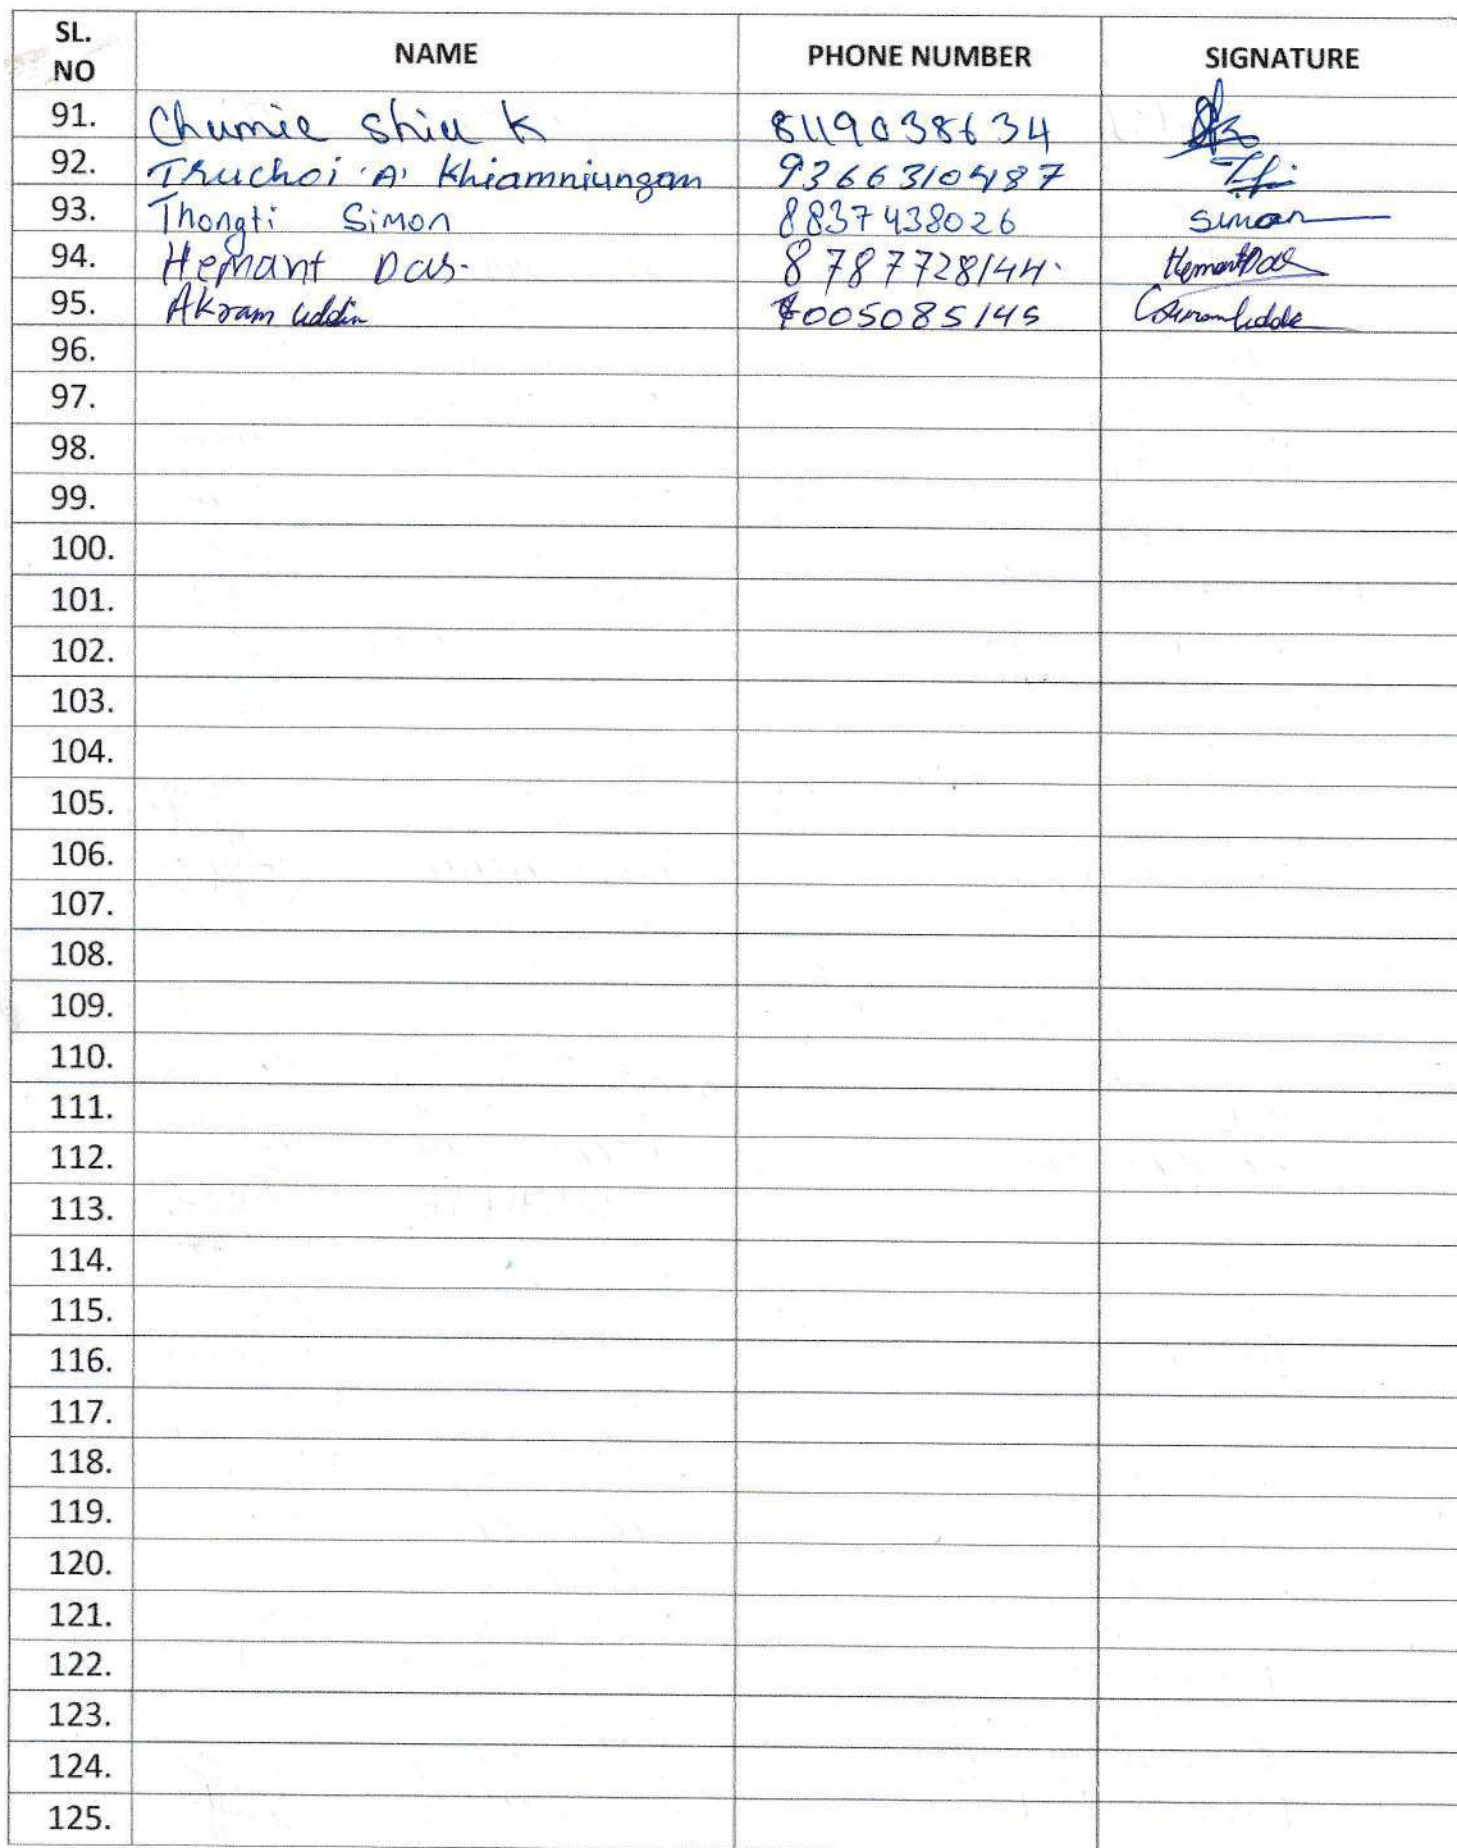 SL. NO NAME PHONE NUMBER SIGNATURE
91. Chumie Shiu K 8119038634
92. Truchoi 'A' Khiamniungan 9366310487
93. Thongti Simon 8837438026 Simon
94. Hemant Das. 8787728144. Hemant Das
95. Akram uddin 7005085145
96.
97.
98.
99.
100.
101.
102.
103.
104.
105.
106.
107.
108.
109.
110.
111.
112.
113.
114.
115.
116.
117.
118.
119.
120.
121.
122.
123.
124.
125.